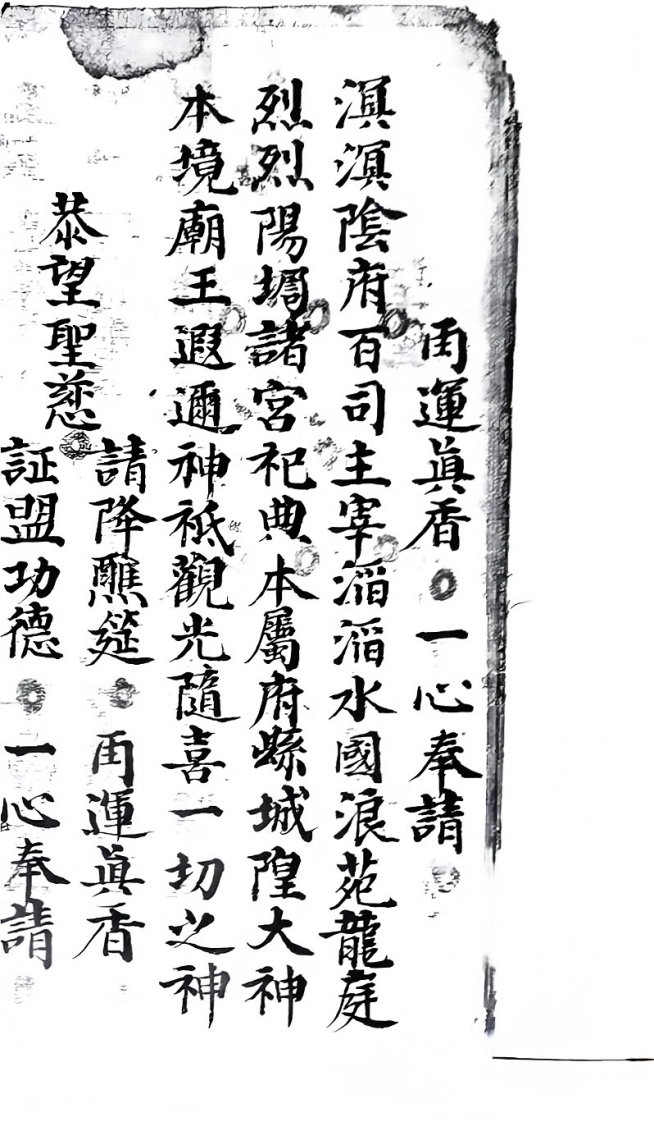 再運眞香○一心奉請○
溟溟陰府百司主宰滔滔水國浪苑龍庭
烈烈陽堈諸宮祀典本屬府縣城隍大神
本境廟王遐邇神祇觀光隨喜一切之神
恭望聖慈○
請降醮筵○再運眞香
証盟功德○一心奉請○